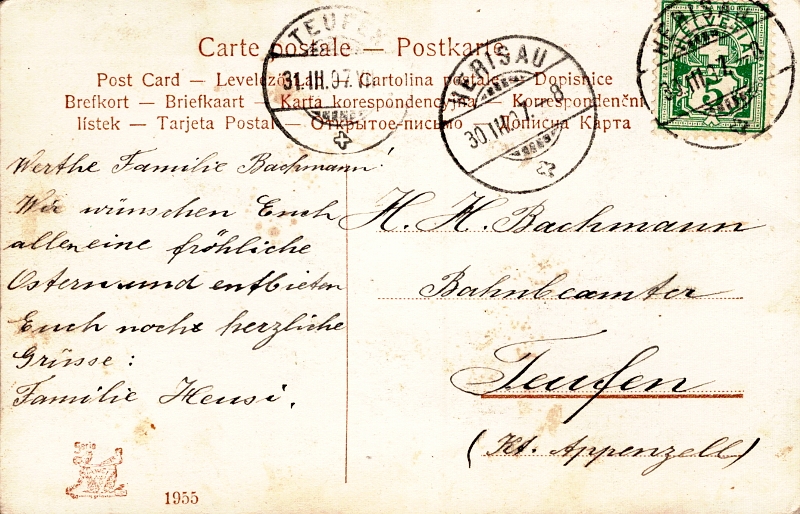 Carte postale — Postkarte
Post Card — Levelező — Cartolina postale — Dopisnice
Brefkort — Briefkaart — Karta korespondencyjna — Korrespondenční
lístek — Tarjeta Postal — Открытое письмо — Дописна Карта
TEUFEN
31.III.07.VII
HERISAU
30.III.07 8
HERISAU
HELVETIA
5
Werthe Familie Bachmann!
Wir wünschen Euch
allen eine fröhliche
Ostern und entbieten
Euch noch herzliche
Grüsse:
Familie Heusi.
H. H. Bachmann
Bahnbeamter
Teufen
(Kt. Appenzell)
Serie
1955